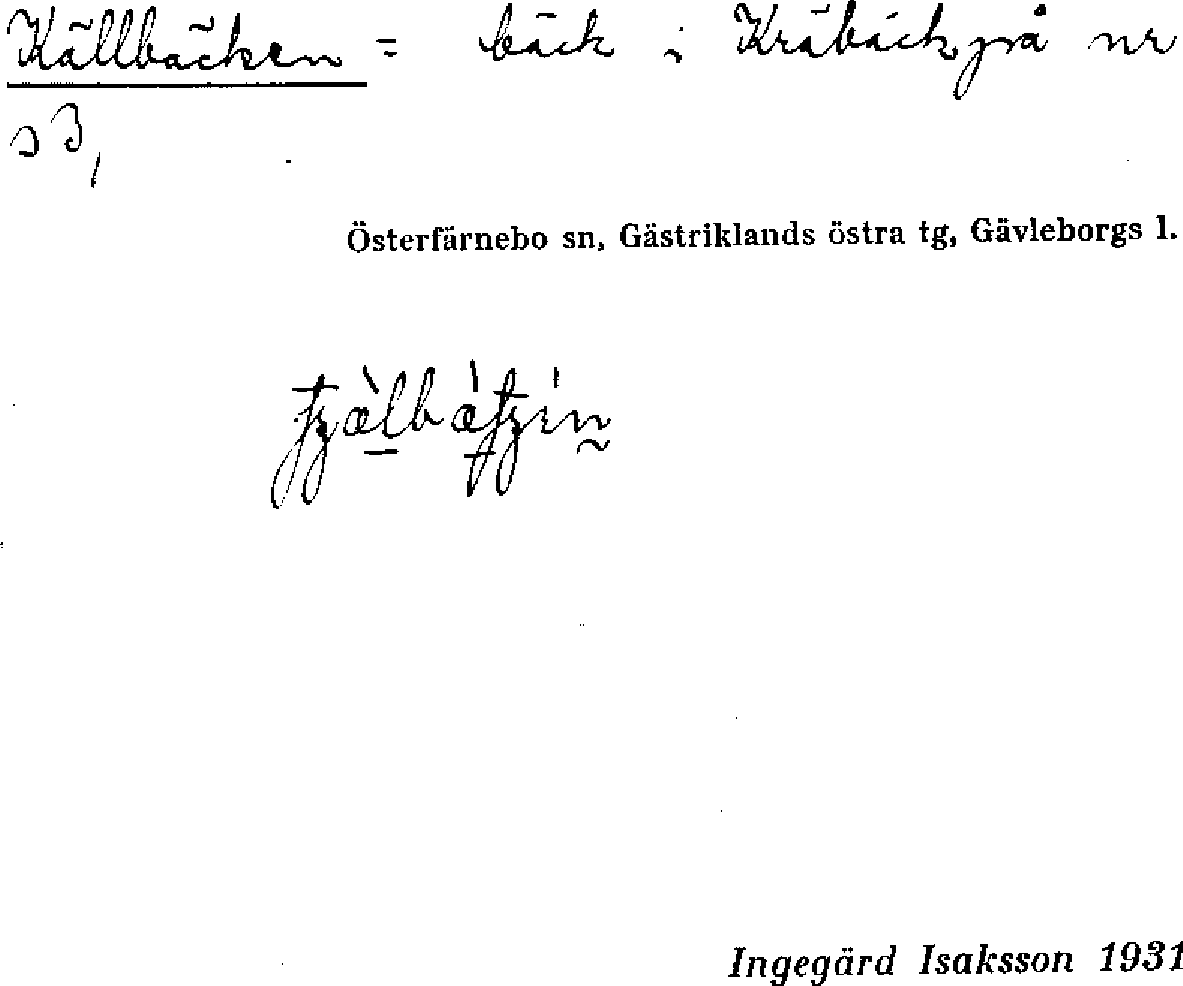 Källbäcken = bäck i Kräbäck på nr
s3,
Österfärnebo sn, Gästriklands östra tg, Gävleborgs l.
Ingegärd Isaksson 1931